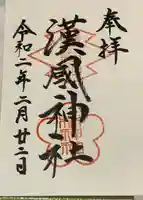 奉拝
漢國神社
令和二年二月廿二日